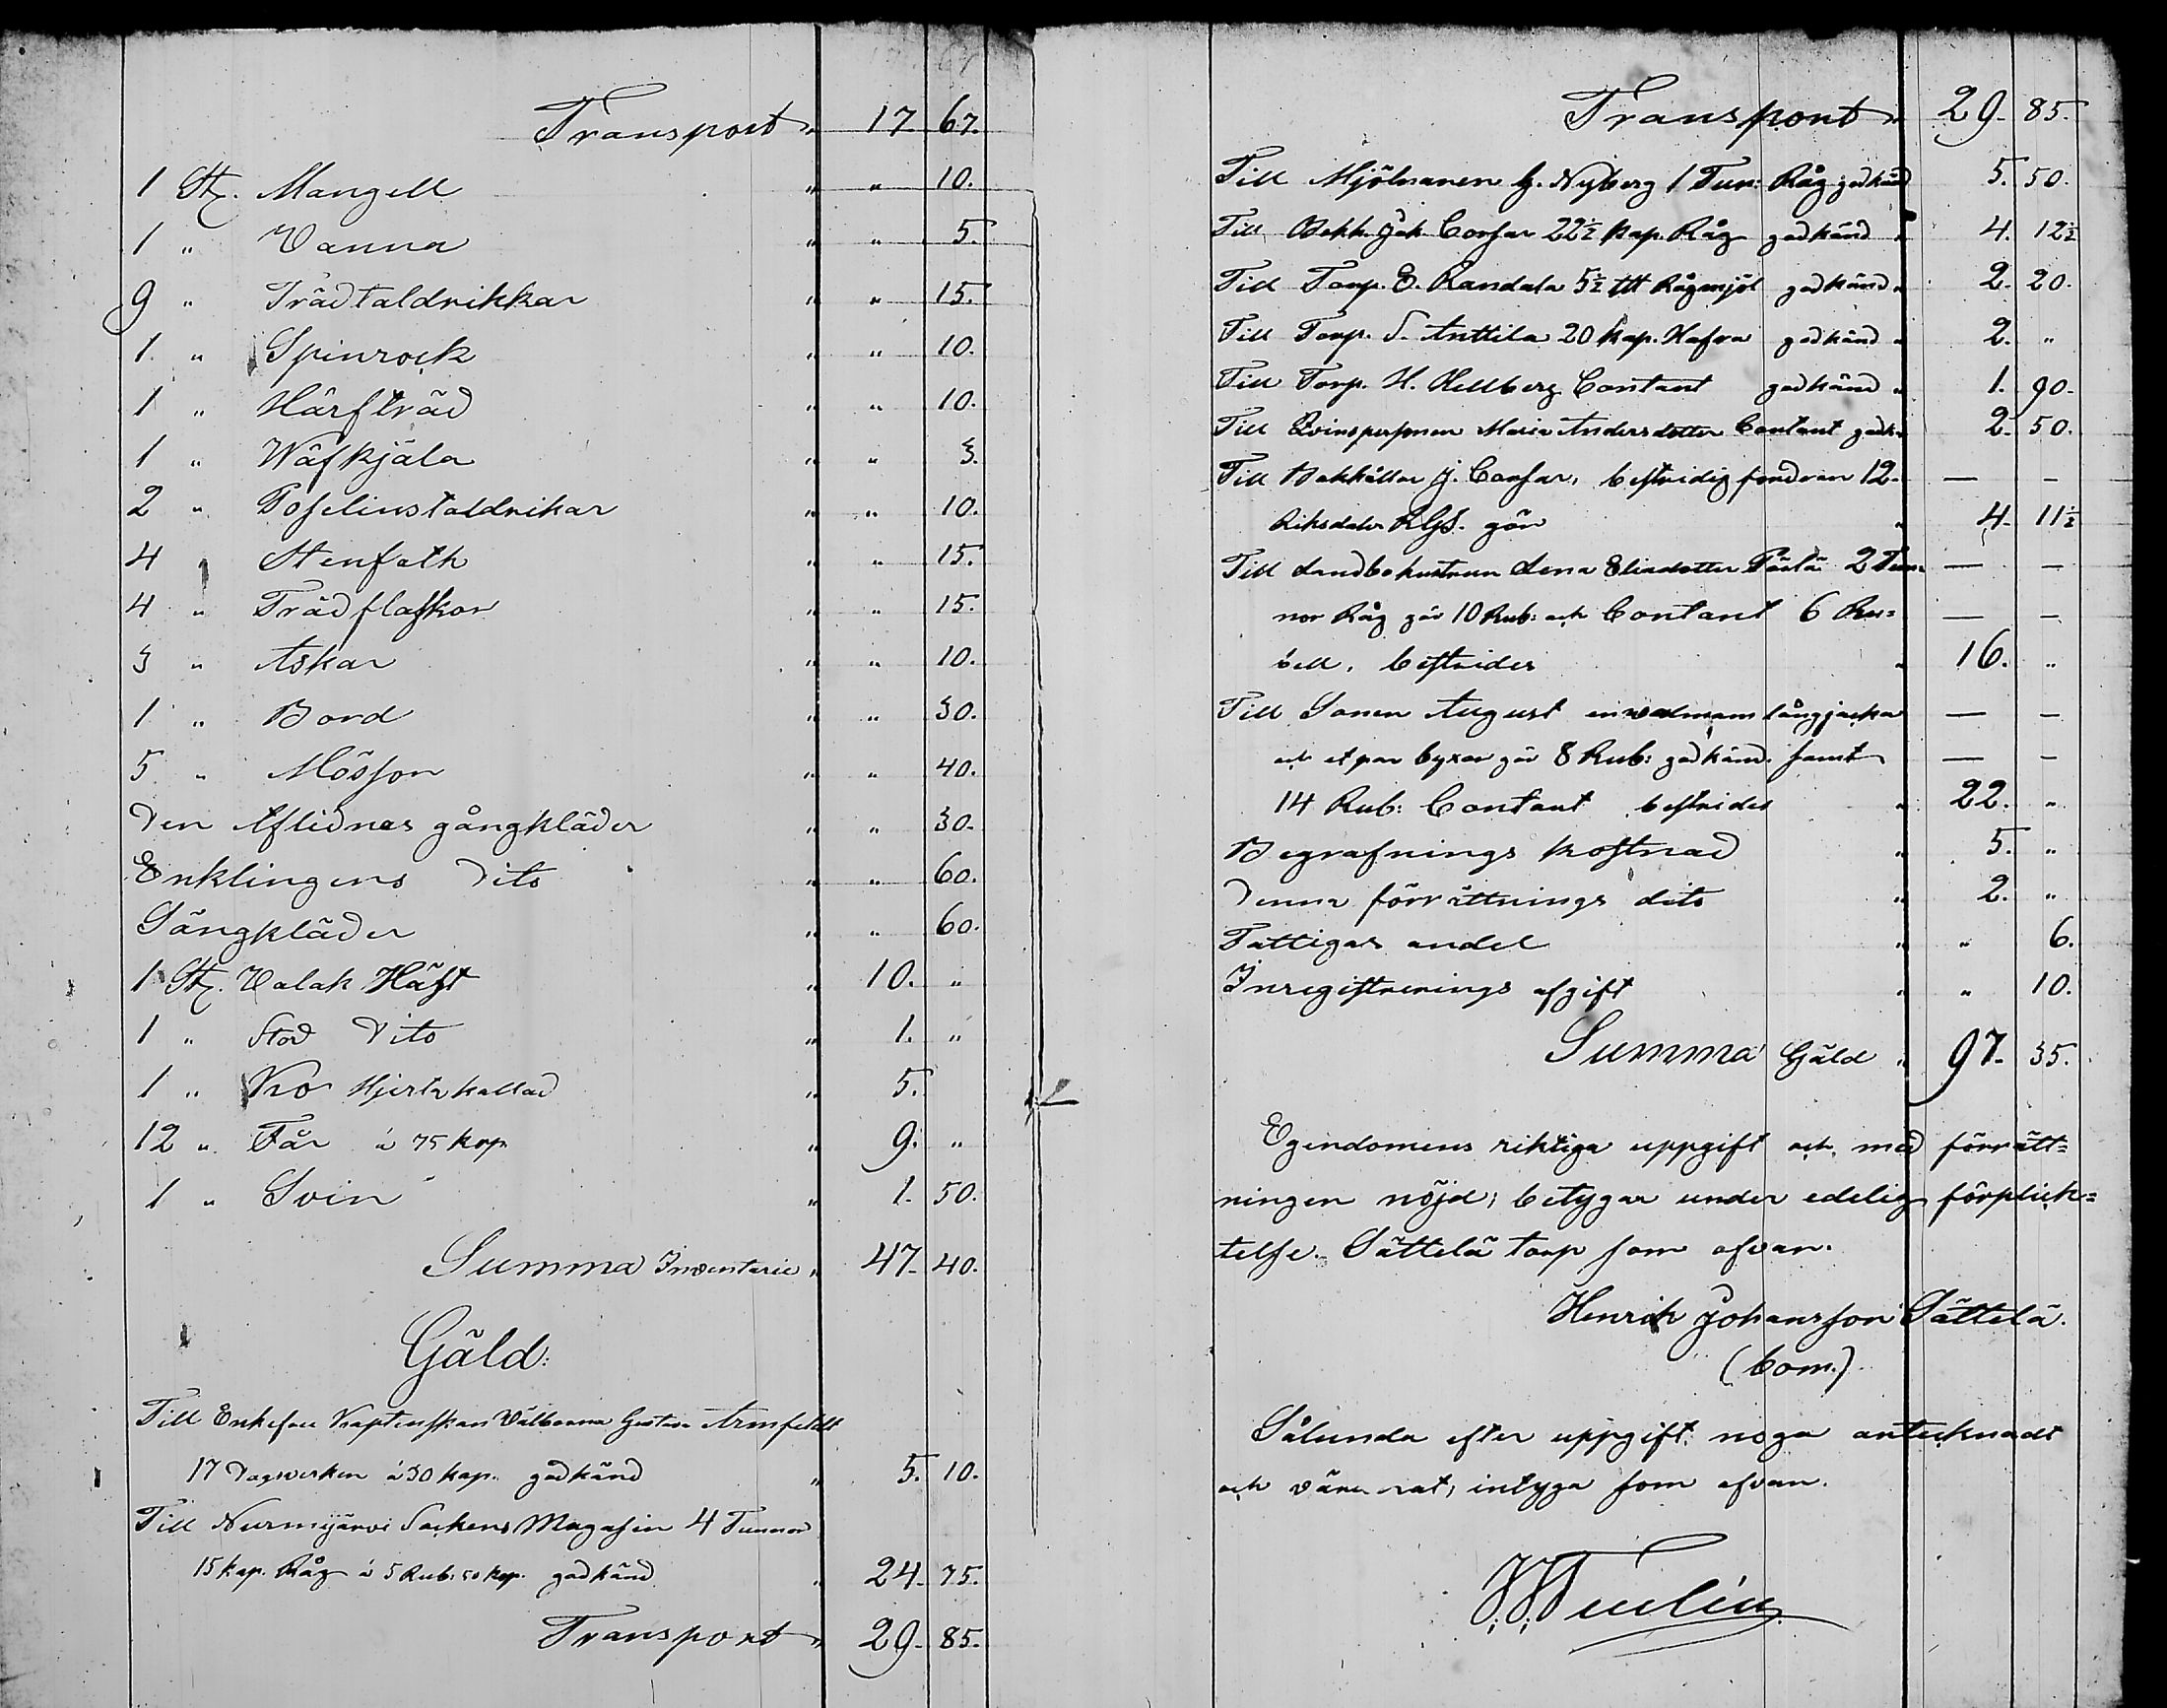 Transport " 17. 67.
1 St. Mangell " " 10.
1 " Vanna " " 5.
9 " Trädtaldrikkar " " 15.
1 " Spinrock " " 10.
1 " Härfträd " " 10.
1 " Wäfkjäla " " 3.
2 " Poselinstaldrikar " " 10.
4 " Stenfath " " 15.
4 " Trädflaskor " " 15.
3 " Askar " " 10.
1 " Bord " " 30.
5 " Mössor " " 40.
Den Aflidnes gångkläder " " 30.
Enklingens dito " " 60.
Sängkläder " " 60.
1 St. Valak Häst " 10. "
1 " Sto dito " 1. "
1 " Ko Hjerta kallad " 5.
12 " Får à 75 kop " 9. "
1 " Svin " 1. 50.
Summa Inventarie " 47. 40.
Gäld:
Till Enkefru Kaptenskan Välborna Gustava Armfeldt
17 Dagsverken à 30 kop. godkänd " 5. 10.
Till Nurmijärvi Sockens Magasin 4 Tunnor
15 kap. Råg à 5 Rub: 50 kop. godkänd " 24. 75.
Transport " 29. 85.
Transport " 29. 85.
Till Mjölnaren G. Nyberg 1 Tun: Råg godkänd 5. 50.
Till Bokh. Joh. Corsar 22½ kap. Råg godkänd " 4. 12½
Till Torp. E. Randala 5½ ltt Rågmjöl godkänd " 2. 20.
Till Torp. S. Anttila 20 kap. Hafra godkänd " 2. "
Till Torp. H. Hellberg Contant godkänd " 1. 90.
Till Qvinspersonen Maria Andersdotter Contant godk. " 2. 50.
Till Bokhållar J. Corsar, bestridig fordran 12. — —
Riksdaler RGS. gör " 4. 11½
Till Landbohustrun Lena Eliadotter Pärlä 2 Tun= — —
nor Råg gör 10 Rub: och Contant 6 Ru= — —
bell, bestrides " 16. "
Till Sonen August en valmans långjacka — —
och et par byxor gör 8 Rub: godkänd. samt — —
14 Rub: Contant bestrides " 22. "
Begrafnings kostnad " 5. "
Denna förrättnings dito " 2. "
Fattigas andel " " 6.
Inregistrerings afgift " " 10.
Summa Gäld " 97. 35.
Egendomens riktiga uppgift och med förrätt=
ningen nöjd; betygar under edelig förplick=
telse. Sättelä torp som ofvan.
Henrik Johansson Sättelä.
(bom.)
Sålunda efter uppgift noga antecknadt
och värderat, intyga som ofvan.